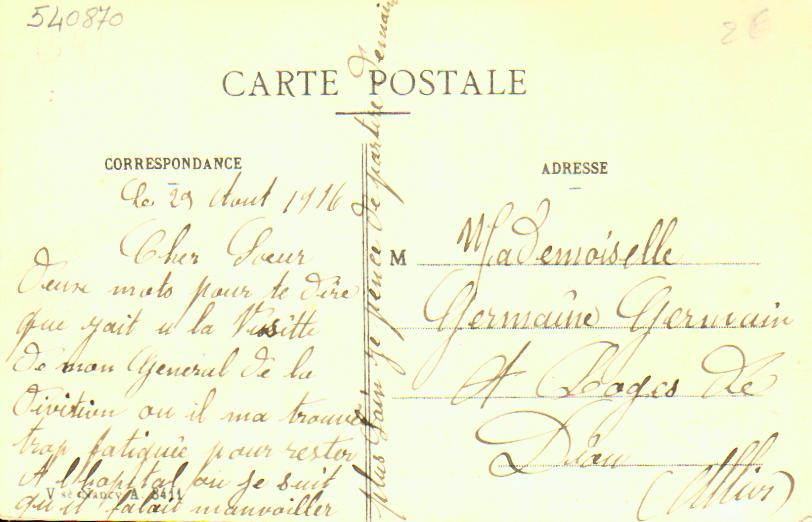 540870
2€
CARTE POSTALE
CORRESPONDANCE
Le 29 Aout 1916
Cher Soeur
Deux mots pour te dire
que jait u la Visitte
de mon General de la
Divition ou il ma trouvé
trop fatiguée pour rester
A l'hopital ou je suit
qu'il falait manvoiller
plus loin je pence de partire Demain
ADRESSE
M Mademoiselle
Germaine Germain
A Loges De
Diou
(Allier)
Nancy A 8411